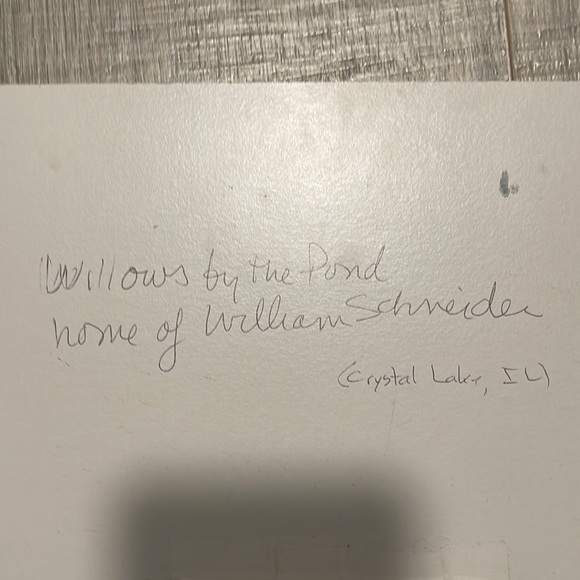 Willows by the Pond
home of William Schneider
(Crystal Lake, IL)